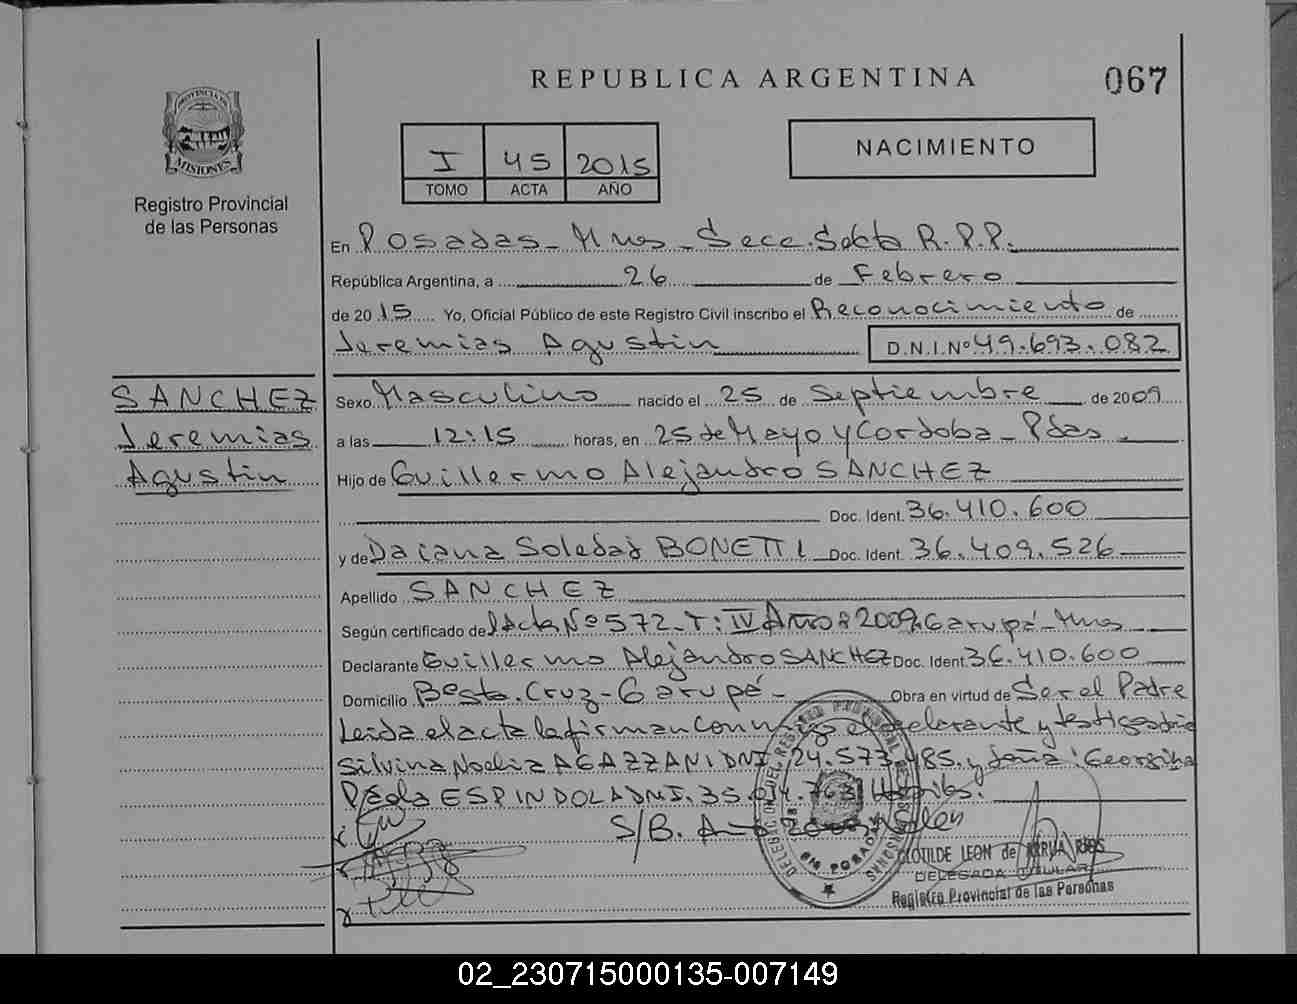 REPUBLICA ARGENTINA
067
PROVINCIA DE
MISIONES
Registro Provincial
de las Personas
I 45 2015
TOMO ACTA AÑO
NACIMIENTO
En Posadas - Mnes - Secc. Sexta R.P.P.
República Argentina, a 26 de Febrero
de 2015 Yo, Oficial Público de este Registro Civil inscribo el Reconocimiento de
Jeremias Agustin D.N.I.Nº 49.693.082
SANCHEZ
Jeremias
Agustin
Sexo Masculino nacido el 25 de Septiembre de 2009
a las 12:15 horas, en 25 de Mayo y Cordoba - Pdas
Hijo de Guillermo Alejandro SANCHEZ
Doc. Ident. 36.410.600
y de Daiana Soledad BONETTI Doc. Ident. 36.409.526
Apellido SANCHEZ
Según certificado de Acta Nº 572 - T: IV Año: 2009. Garupá - Mnes
Declarante Guillermo Alejandro SANCHEZ Doc. Ident. 36.410.600
Domicilio Bo Sta. Cruz - Garupá - Obra en virtud de Ser el Padre
Leida el acta la firman conmigo el declarante y testigos
Silvina Noelia AGAZZANI DNI 24.573.485. y doña: Georgina
Paola ESPINDOLA DNI. 35.014.763 Habiles.
S/B. Año 2009 Valen
CLOTILDE LEON de
DELEGADA TITULAR
Registro Provincial de las Personas
DELEGACION DEL REGISTRO PROVINCIAL DE LAS PERSONAS
POSADAS
02_230715000135-007149